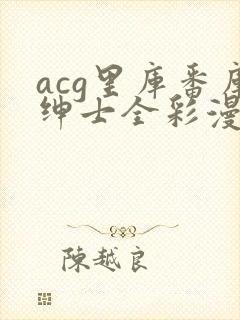 acg里库番库
绅士全彩漫
陳越良